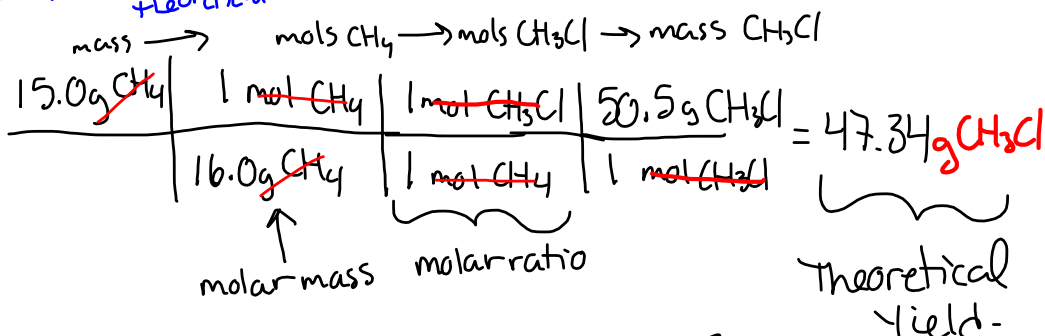 theoretical
mass → mols CH4 → mols CH3Cl → mass CH3Cl
15.0g CH4 | 1 mol CH4 | 1 mol CH3Cl | 50.5g CH3Cl
= 47.34 g CH3Cl
16.0g CH4 | 1 mol CH4 | 1 mol CH3Cl
molar mass
molar ratio
Theoretical
Yield-